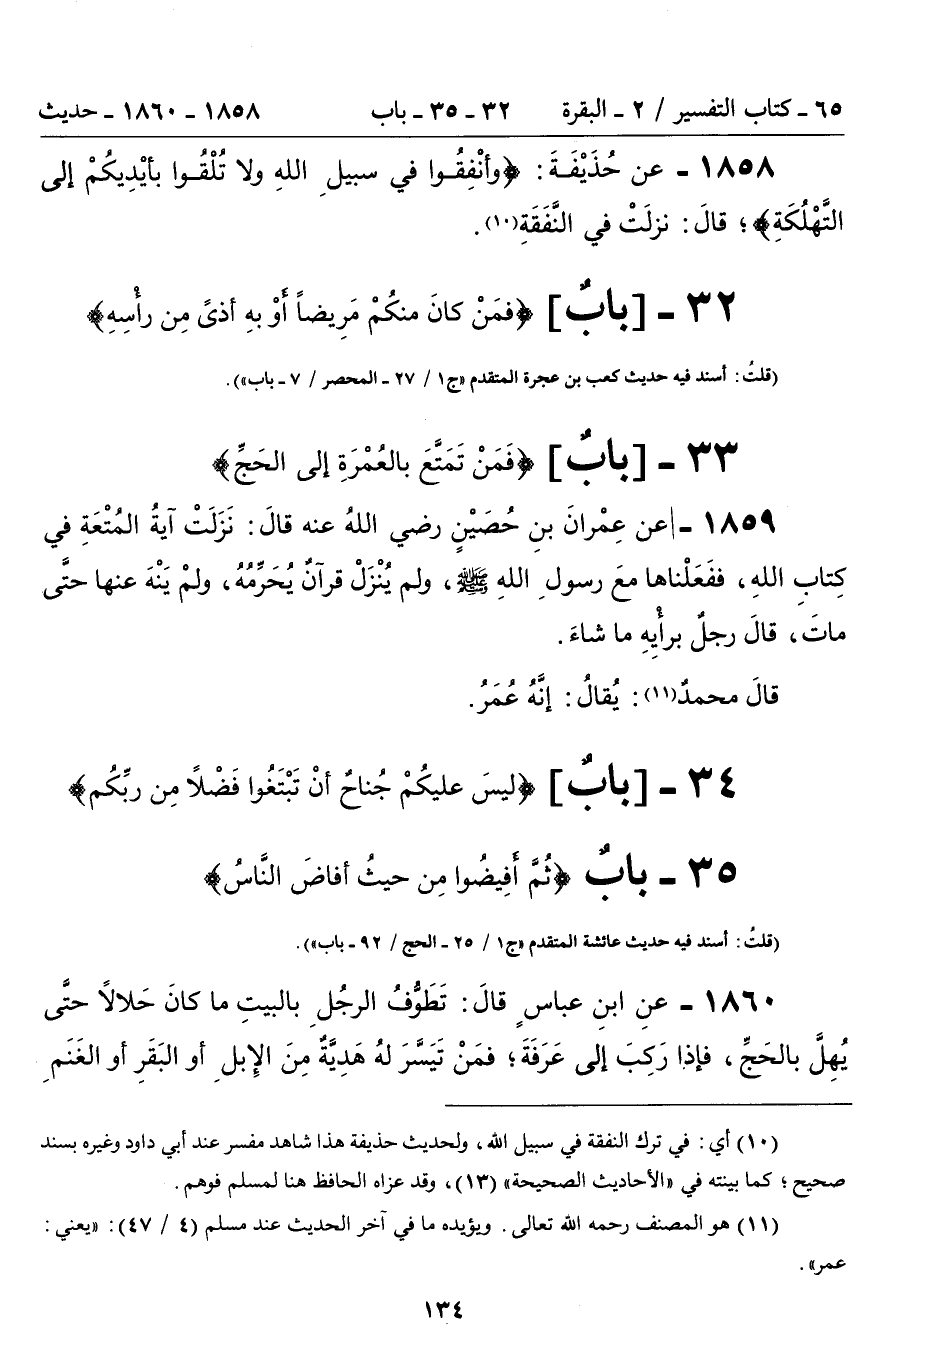 ٦٥ ـ كتاب التفسير / ٢ ـ البقرة ٣٢ ـ ٣٥ ـ باب ١٨٥٨ ـ ١٨٦٠ ـ حديث
١٨٥٨ ـ عن حُذَيْفَةَ: ﴿وأنْفِقُوا في سبيلِ اللهِ ولا تُلْقُوا بأيْدِيكُمْ إلى
التَّهْلُكَةِ﴾؛ قالَ: نزلَتْ في النَّفَقَةِ(١٠).
٣٢ ـ [بابٌ] ﴿فمَنْ كانَ منكُمْ مَرِيضاً أَوْ بهِ أذىً مِن رأْسِهِ﴾
(قلتُ: أسند فيه حديث كعب بن عجرة المتقدم «ج١ / ٢٧ ـ المحصر / ٧ ـ باب»).
٣٣ ـ [بابٌ] ﴿فَمَنْ تَمَتَّعَ بالعُمْرَةِ إلى الحَجِّ﴾
١٨٥٩ ـ عن عِمْرانَ بنِ حُصَيْنٍ رضي اللهُ عنه قالَ: نَزَلَتْ آيةُ المُتْعَةِ في
كِتابِ اللهِ، ففَعَلْناها معَ رسولِ اللهِ ﷺ، ولم يُنْزَلْ قرآنٌ يُحَرِّمُهُ، ولمْ يَنْهَ عنها حتَّى
ماتَ، قالَ رجلٌ برأْيِهِ ما شاءَ.
قالَ محمدٌ(١١): يُقالُ: إنَّهُ عُمَرُ.
٣٤ ـ [بابٌ] ﴿ليسَ عليكُمْ جُناحٌ أنْ تَبْتَغُوا فَضْلًا مِن ربِّكُم﴾
٣٥ ـ بابٌ ﴿ثُمَّ أَفِيضُوا مِن حيثُ أفاضَ النَّاسُ﴾
(قلتُ: أسند فيه حديث عائشة المتقدم «ج١ / ٢٥ ـ الحج / ٩٢ ـ باب»).
١٨٦٠ ـ عنِ ابنِ عباسٍ قالَ: تَطَوُّفُ الرجُلِ بالبيتِ ما كانَ حَلالاً حتَّى
يُهِلَّ بالحَجِّ، فإذا رَكِبَ إلى عَرَفَةَ؛ فمَنْ تَيَسَّرَ لهُ هَدِيَّةٌ مِنَ الإِبلِ أو البَقَرِ أو الغَنَمِ
(١٠) أي: في ترك النفقة في سبيل الله، ولحديث حذيفة هذا شاهد مفسر عند أبي داود وغيره بسند
صحيح؛ كما بينته في «الأحاديث الصحيحة» (١٣)، وقد عزاه الحافظ هنا لمسلم فوهم.
(١١) هو المصنف رحمه الله تعالى. ويؤيده ما في آخر الحديث عند مسلم (٤ / ٤٧): «يعني:
عمر».
١٣٤